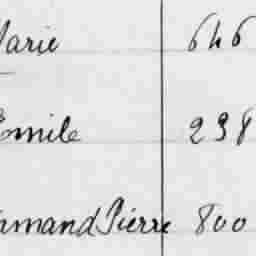 Marie 646
Emile 298
Armand Pierre 800